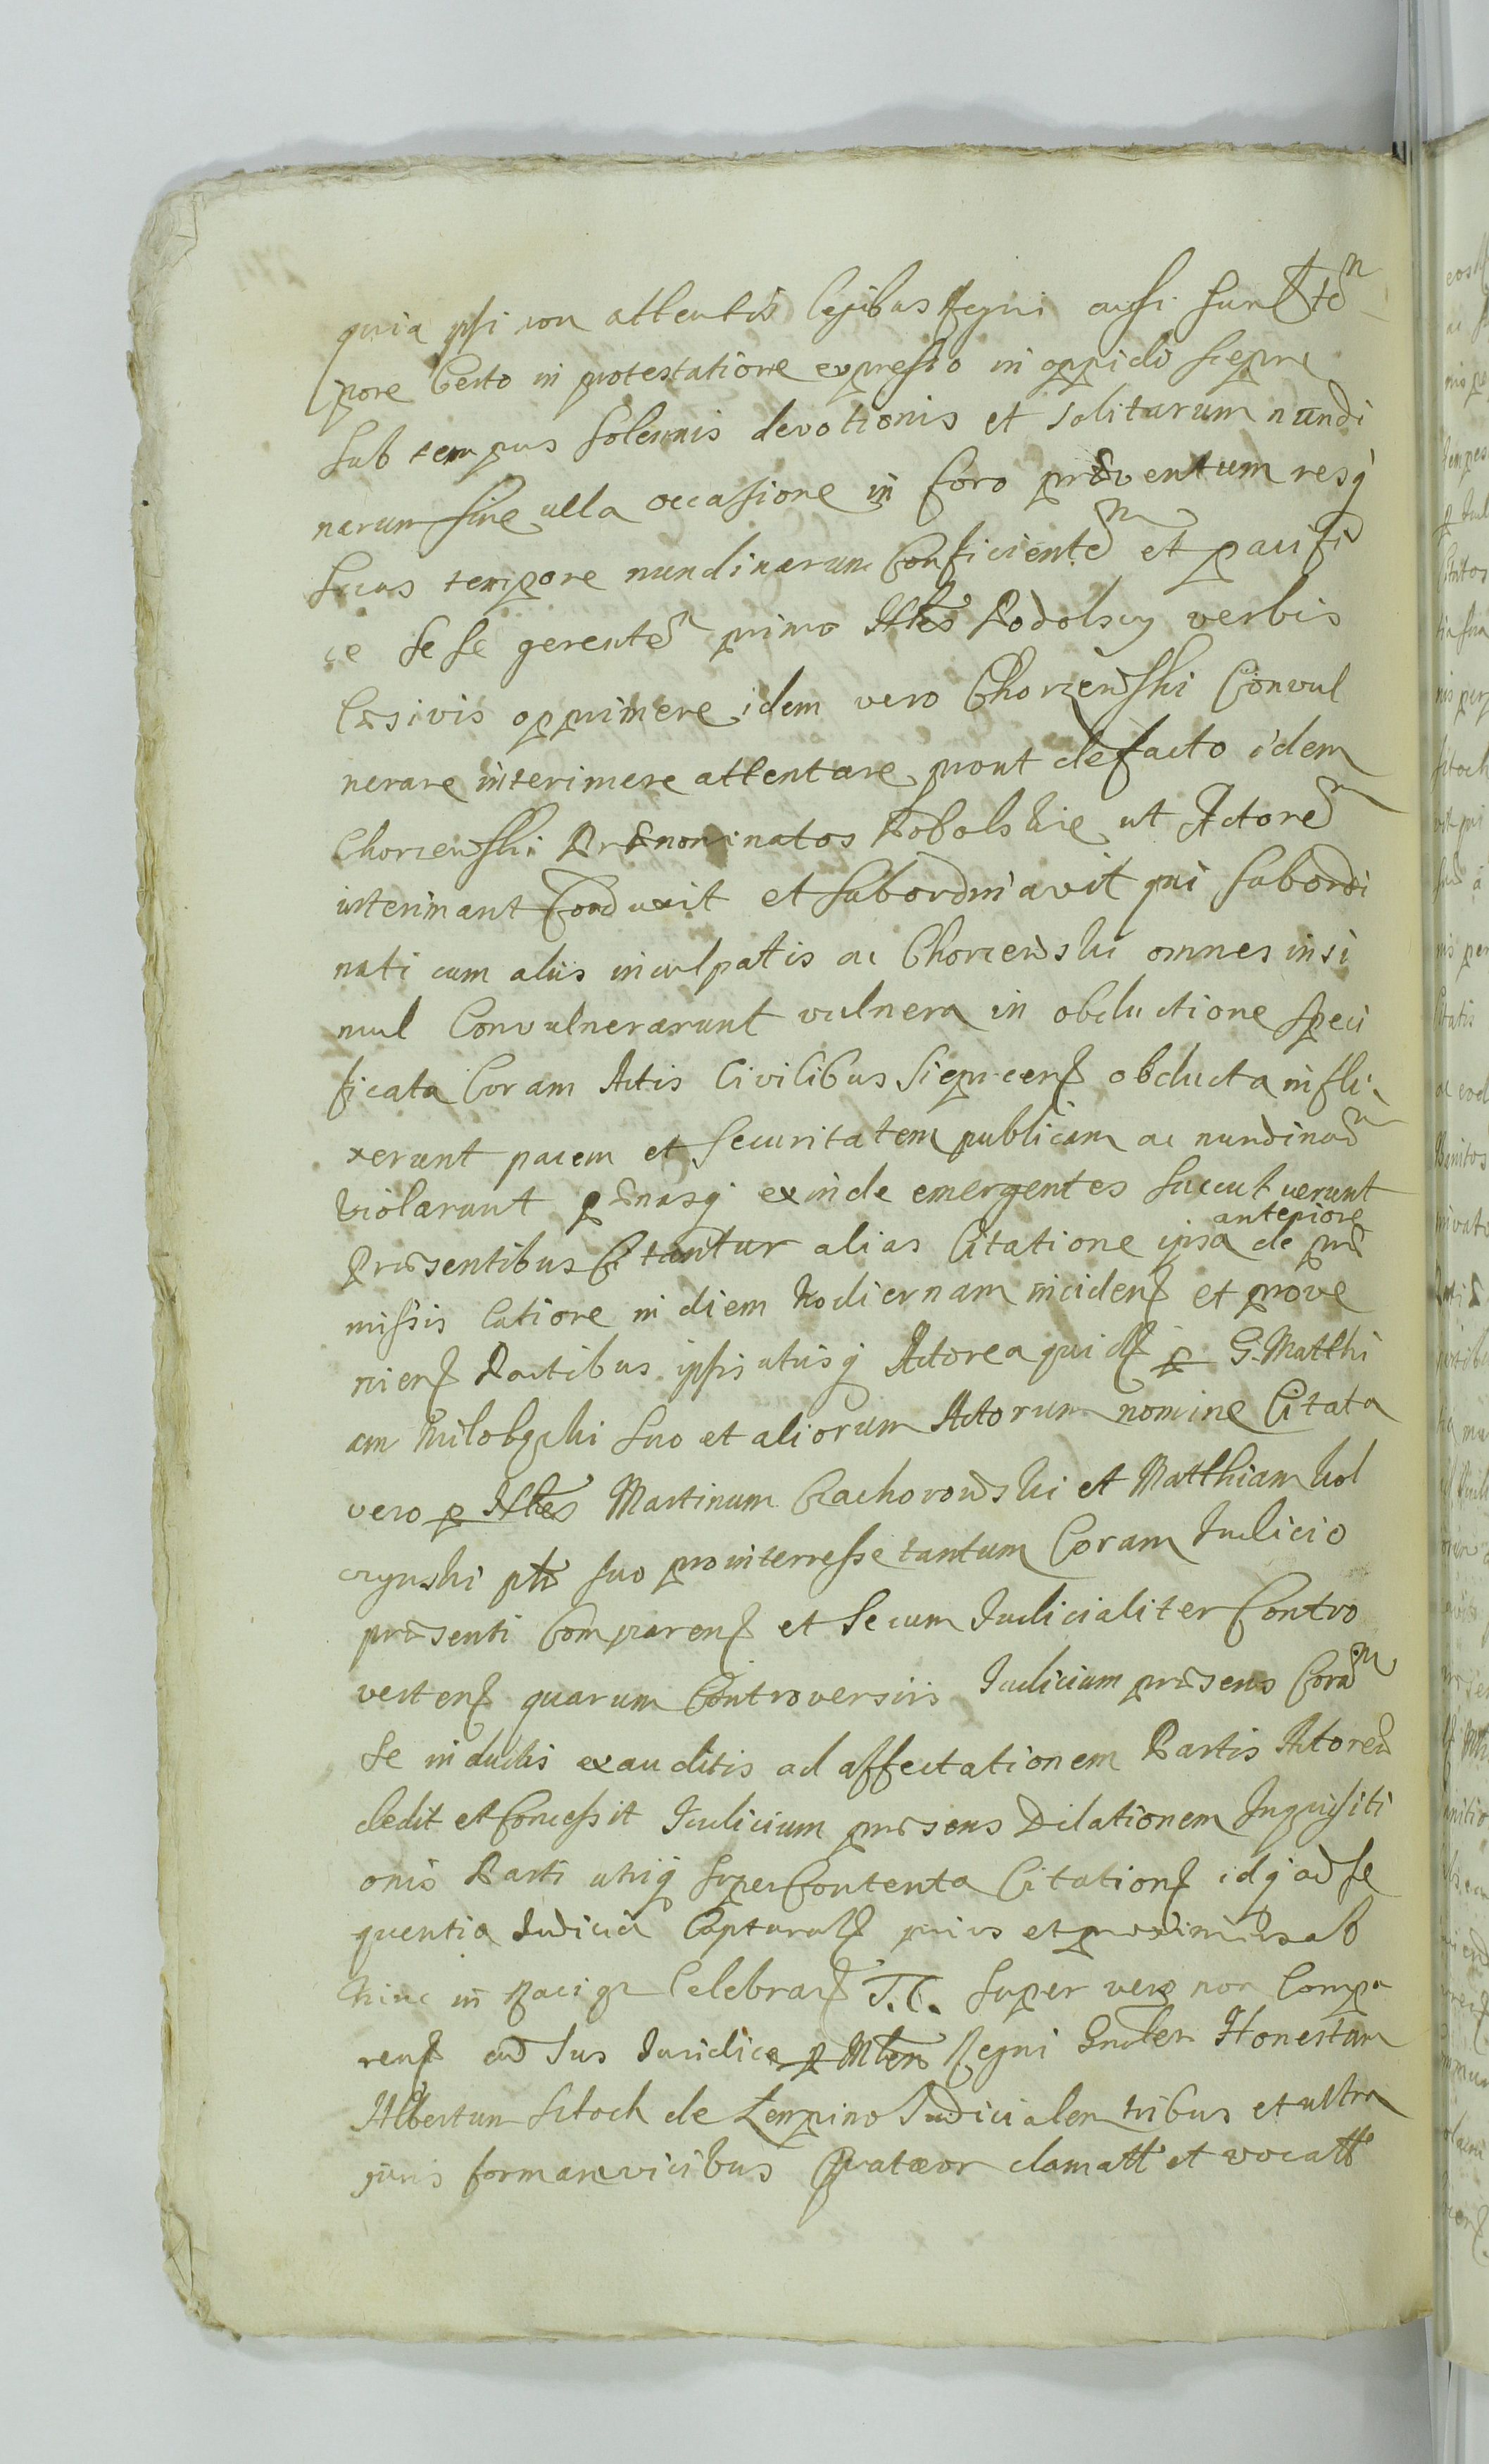 quia ipsi non attentis legibus Regni ausi sunt tem
pore certo in protestatione expresso in oppido Siepre
sub tempus solemnis devotionis et solitarum nundi
narum sine ulla occasione in foro præventum resq
suas tempore nundinarum conficientem et pacifi
ce sese gerentem primo Nbles Podolscy verbis
læsivis opprimere idem vero Chorzewski convul
nerare interimere attentare prout de facto idem
Chorzewski Prænominatos Podolskie ut Actorem
interimant conduxit et subordinavit qui subordi
nati cum aliis inculpatis ac Chorzewski omnes insi
mul convulnerarunt vulnera in obductione speci
ficata coram Actis Civilibus Sieprcens obducta infli
xerunt pacem et securitatem publicam ac nundinam
violarunt pænasq exinde emergentes succubuerunt
anteriore
Præsentibus citantur alias Citatione ipsa de præ
missis latiore in diem hodiernam incidens et prove
niens Partibus ipsis utrisq Actorea quidem p G. Matthi
am Milobęzki suo et aliorum Actorum nomine Citata
vero p Nbles Martinum Rachorowski et Matthiam Kol
czynski suo pro interresse tantum Coram Iudicio
præsenti Comparens et secum Iudicialiter Contro
vertens quarum Controversiis Iudicium præsens Coram
se inductis exauditis ad affectationem Partis Actoreæ
dedit et Concessit Iudicium præsens Dilationem Inquisiti
onis Parti utriq super Contenta Citations idq ad se
quentia Iudicia Captural prius et proximius ab
hinc in Raciąz celebran T. C. super vero non Compa
rens ad Ius Iuridice p Mlem Regni Gnalem Honestum
Albertum Sitoch de Lempino Iudicialem tribus et ultra
iuris formam vicibus Quatuor clamatt et vocatt